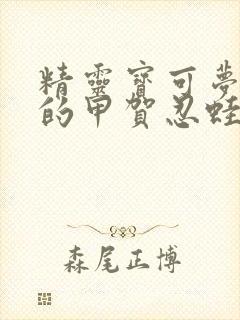 精靈寶可夢
的甲賀忍蛙
森尾正博